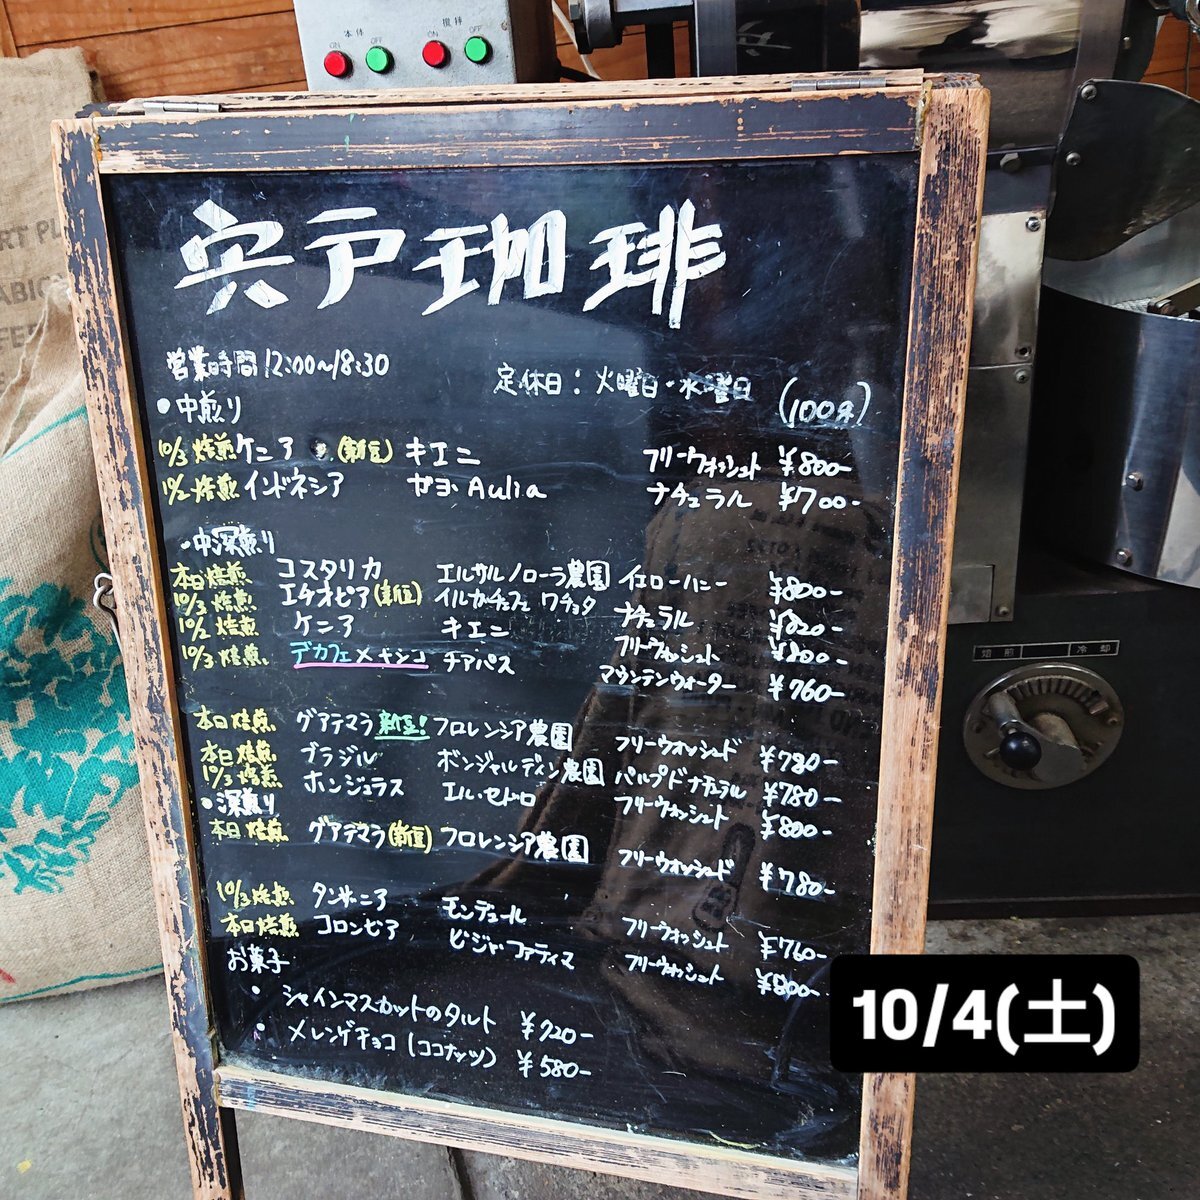 本体 攪拌
ON OFF ON OFF
宍戸珈琲
営業時間 12:00~18:30 定休日:火曜日・水曜日 (100g)
●中煎り
10/3 焙煎 ケニア (新豆) キエニ フリーウォッシュト ¥800-
10/2 焙煎 インドネシア ガヨ Aulia ナチュラル ¥700-
・中深煎り
本日焙煎 コスタリカ エルサルノローラ農園 イエローハニー ¥800-
10/3 焙煎 エチオピア (新豆) イルガチェフェ ワチュタ ナチュラル ¥820-
10/2 焙煎 ケニア キエニ フリーウォッシュト ¥800-
10/3 焙煎 デカフェメキシコ チアパス マウンテンウォーター ¥760-
本日焙煎 グアテマラ 新豆! フロレンシア農園 フリーウォッシュド ¥780-
本日焙煎 ブラジル ボンジャルディン農園 パルプドナチュラル ¥780-
10/3 焙煎 ホンジュラス エル・セドロ フリーウォッシュト ¥800-
●深煎り
本日焙煎 グアテマラ (新豆) フロレンシア農園 フリーウォッシュド ¥780-
10/3 焙煎 タンザニア モンデュール フリーウォッシュト ¥760-
本日焙煎 コロンビア ビジャファティマ フリーウォッシュト ¥800-
お菓子
・シャインマスカットのタルト ¥720-
・メレンゲチョコ (ココナッツ) ¥580-
焙煎 冷却
10/4(土)